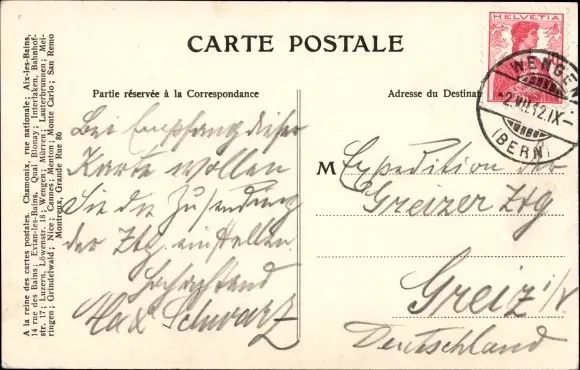 CARTE POSTALE
HELVETIA
WENGEN
2.VII.12.IX-
(BERN)
Partie réservée à la Correspondance
Adresse du Destinat
A la reine des cartes postales, Chamonix, rue nationale; Aix-les-Bains,
14 rue des Bains; Evian-les-Bains, Quai Blonay; Interlaken, Bahnhof-
str. 17; Luzern, Löwenstr. 18; Wengen; Mürren; Lauterbrunnen; Mei-
ringen; Grindelwald; Nice; Cannes; Menton; Monte Carlo; San Remo
Montreux, Grande Rue 80
Bei Empfang dieser
Karte wollen
Sie die Zusendung
der Ztg. einstellen.
Hochachtend
Max Schwarz
M Expedition der
Greizer Ztg
Greiz i/V
Deutschland